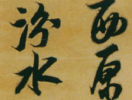 西原
汾水